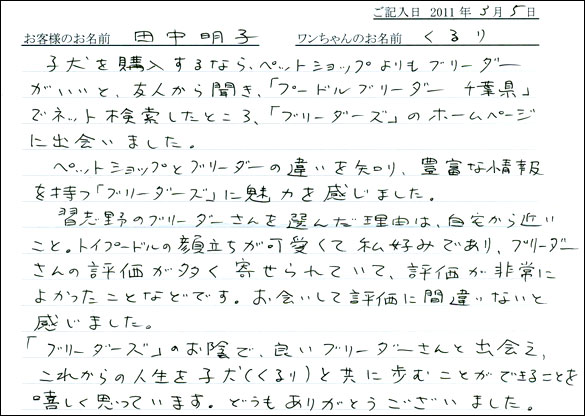 ご記入日 2011年 3月 5日
お客様のお名前 田中明子 ワンちゃんのお名前 くるり
子犬を購入するなら、ペットショップよりもブリーダー
がいいと、友人から聞き、「プードルブリーダー 千葉県」
でネット検索したところ、「ブリーダーズ」のホームページ
に出会いました。
ペットショップとブリーダーの違いを知り、豊富な情報
を持つ「ブリーダーズ」に魅力を感じました。
習志野のブリーダーさんを選んだ理由は、自宅から近い
こと。トイプードルの顔立ちが可愛くて私好みであり、ブリーダー
さんの評価が多く寄せられていて、評価が非常に
よかったことなどです。お会いして評価に間違いないと
感じました。
「ブリーダーズ」のお陰で、良いブリーダーさんと出会え、
これからの人生を子犬(くるり)と共に歩むことができることを
嬉しく思っています。どうもありがとうございました。